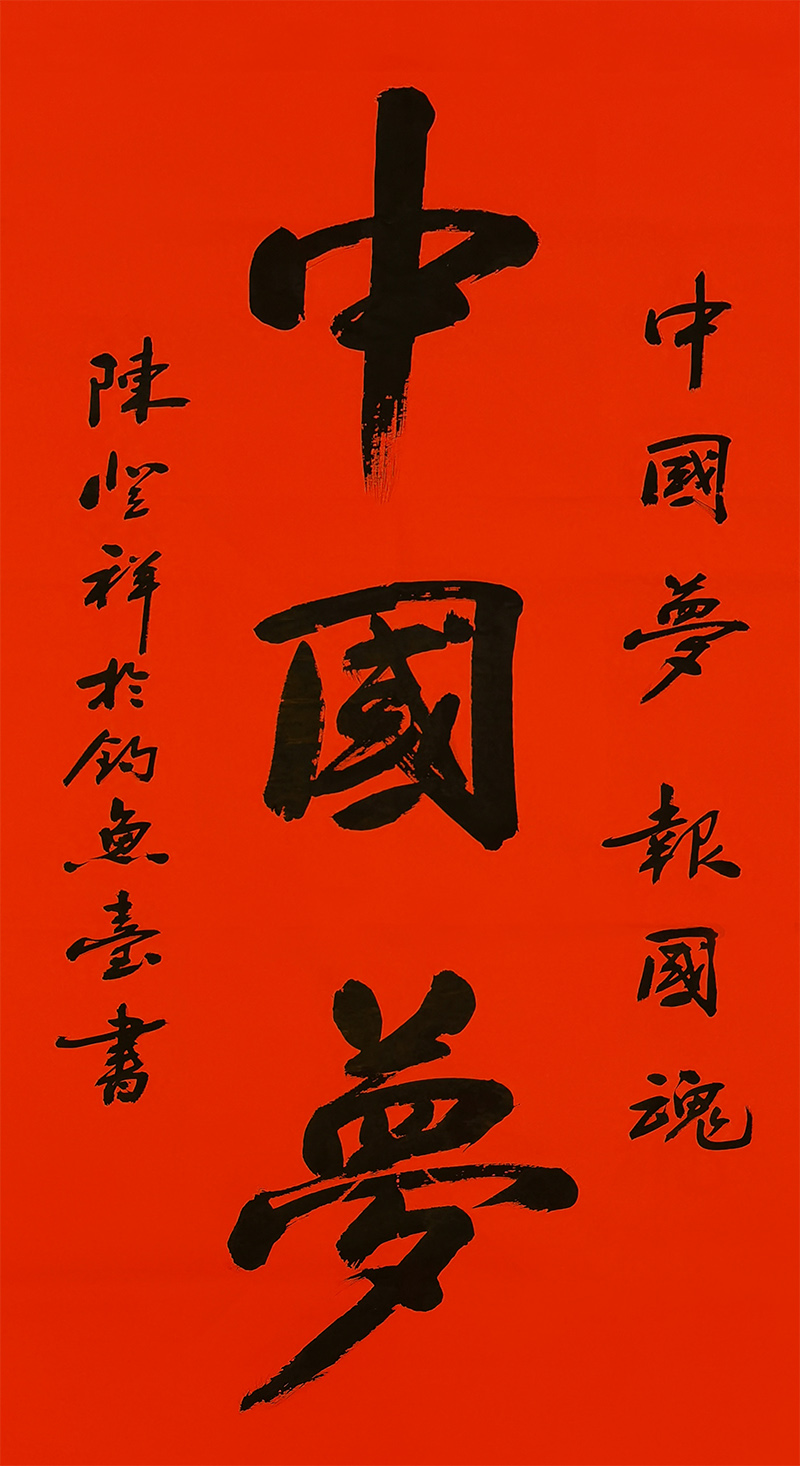 中國夢 報國魂
中國夢
陳登祥於釣魚臺書